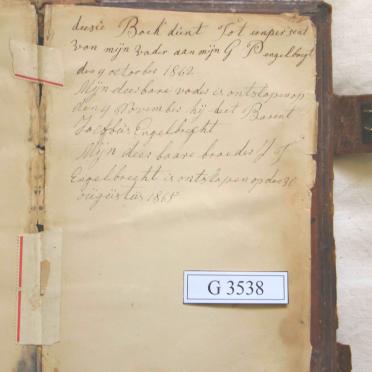 deesie Boek dient Tot een present
van mijn vader aan mijn G P Engelbregt
den 9 october 1862
Mijn dierbare vader is ontslapen op
den 4 November hij hiet Barent
Jacobus Engelbrecht
Mijn dierbaare broeder J J
Engelbreght is ontslapen op de 30
augustus 1865
G 3538